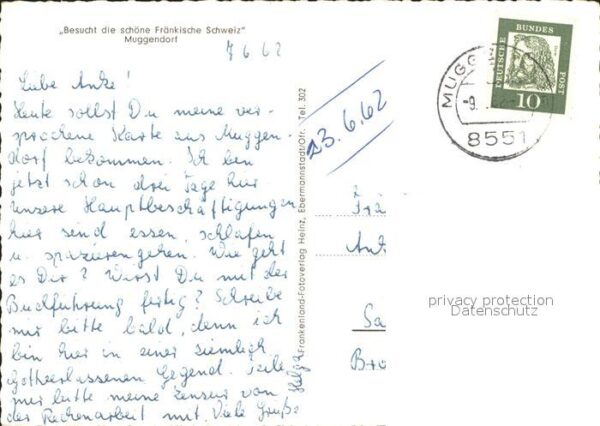 „Besucht die schöne Fränkische Schweiz"
Muggendorf
7 6 62
Liebe Anke!
Heute sollst Du meine ver-
sprochene Karte aus Muggen-
dorf bekommen. Ich bin
jetzt schon drei Tage hier
unsere Hauptbeschäftigungen
hier sind essen, schlafen
u. spazierengehen. Wie geht
es Dir? Wirst Du mit der
Buchführung fertig? Schreibe
mir bitte bald, denn ich
bin hier in einer ziemlich
gottverlassenen Gegend. Teile
mir bitte meine Zensur von
der Rechenarbeit mit. Viele Grüße
Helga
Frankenland-Fotoverlag Heinz, Ebermannstadt/Ofr. Tel. 302
23.6.62
DEUTSCHE BUNDES POST
10
MUGG
-9.
8551
Frä
Ank
Sa
Bro
privacy protection
Datenschutz